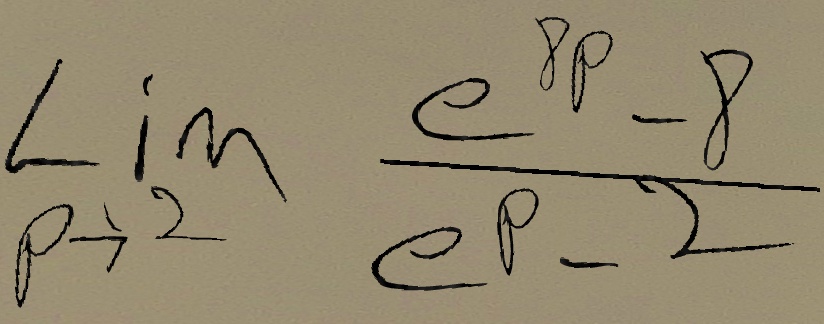 Lim p→2 (e^{8p} - 8)/(e^{p} - 2)